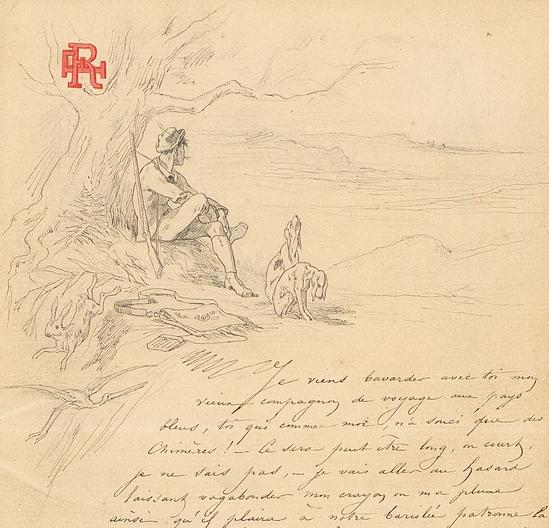 FR
Je viens bavarder avec toi mon
vieux compagnon de voyage aux pays
bleus, toi qui comme moi, n'a souci que des
Chimères ! – Ce sera peut être long, ou court,
je ne sais pas, – je vais aller au hasard
laissant vagabonder mon crayon ou ma plume
ainsi qu'il plaira à notre bariolée patronne la